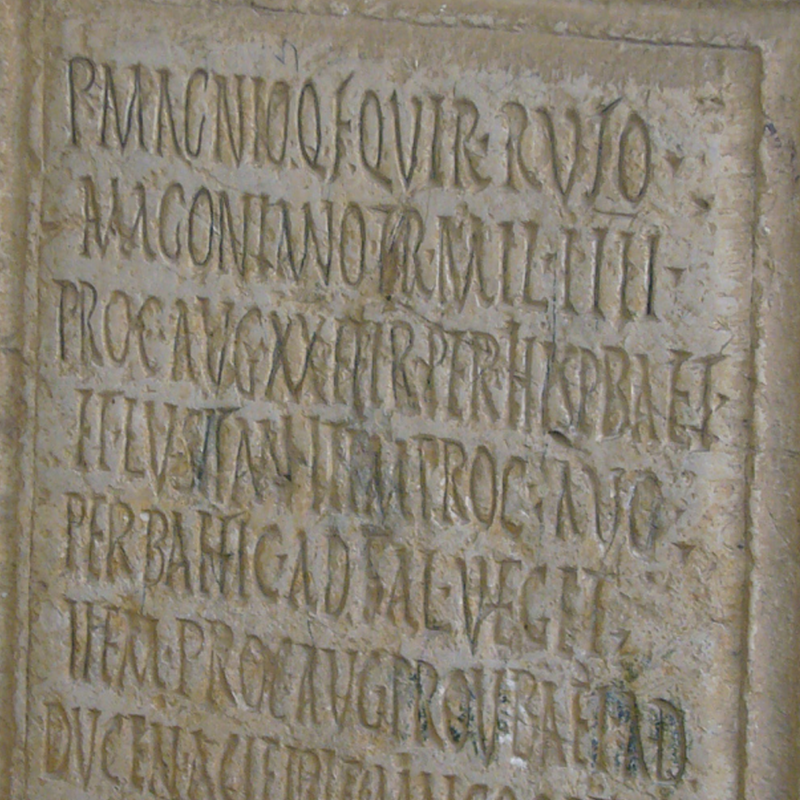 P·MAGNIO·Q·F·QVIR·RVFO
MAGONIANO·TR·MIL·IIII·
PROC·AVG·XX·HER·PER·HISP·BAET·
ET·LVSITAN·ITEM·PROC·AVG
PER·BAETIC·AD·FAL·VEGET
ITEM·PROC·AVG·PROV·BAET·AD
DVCEN·ACILI